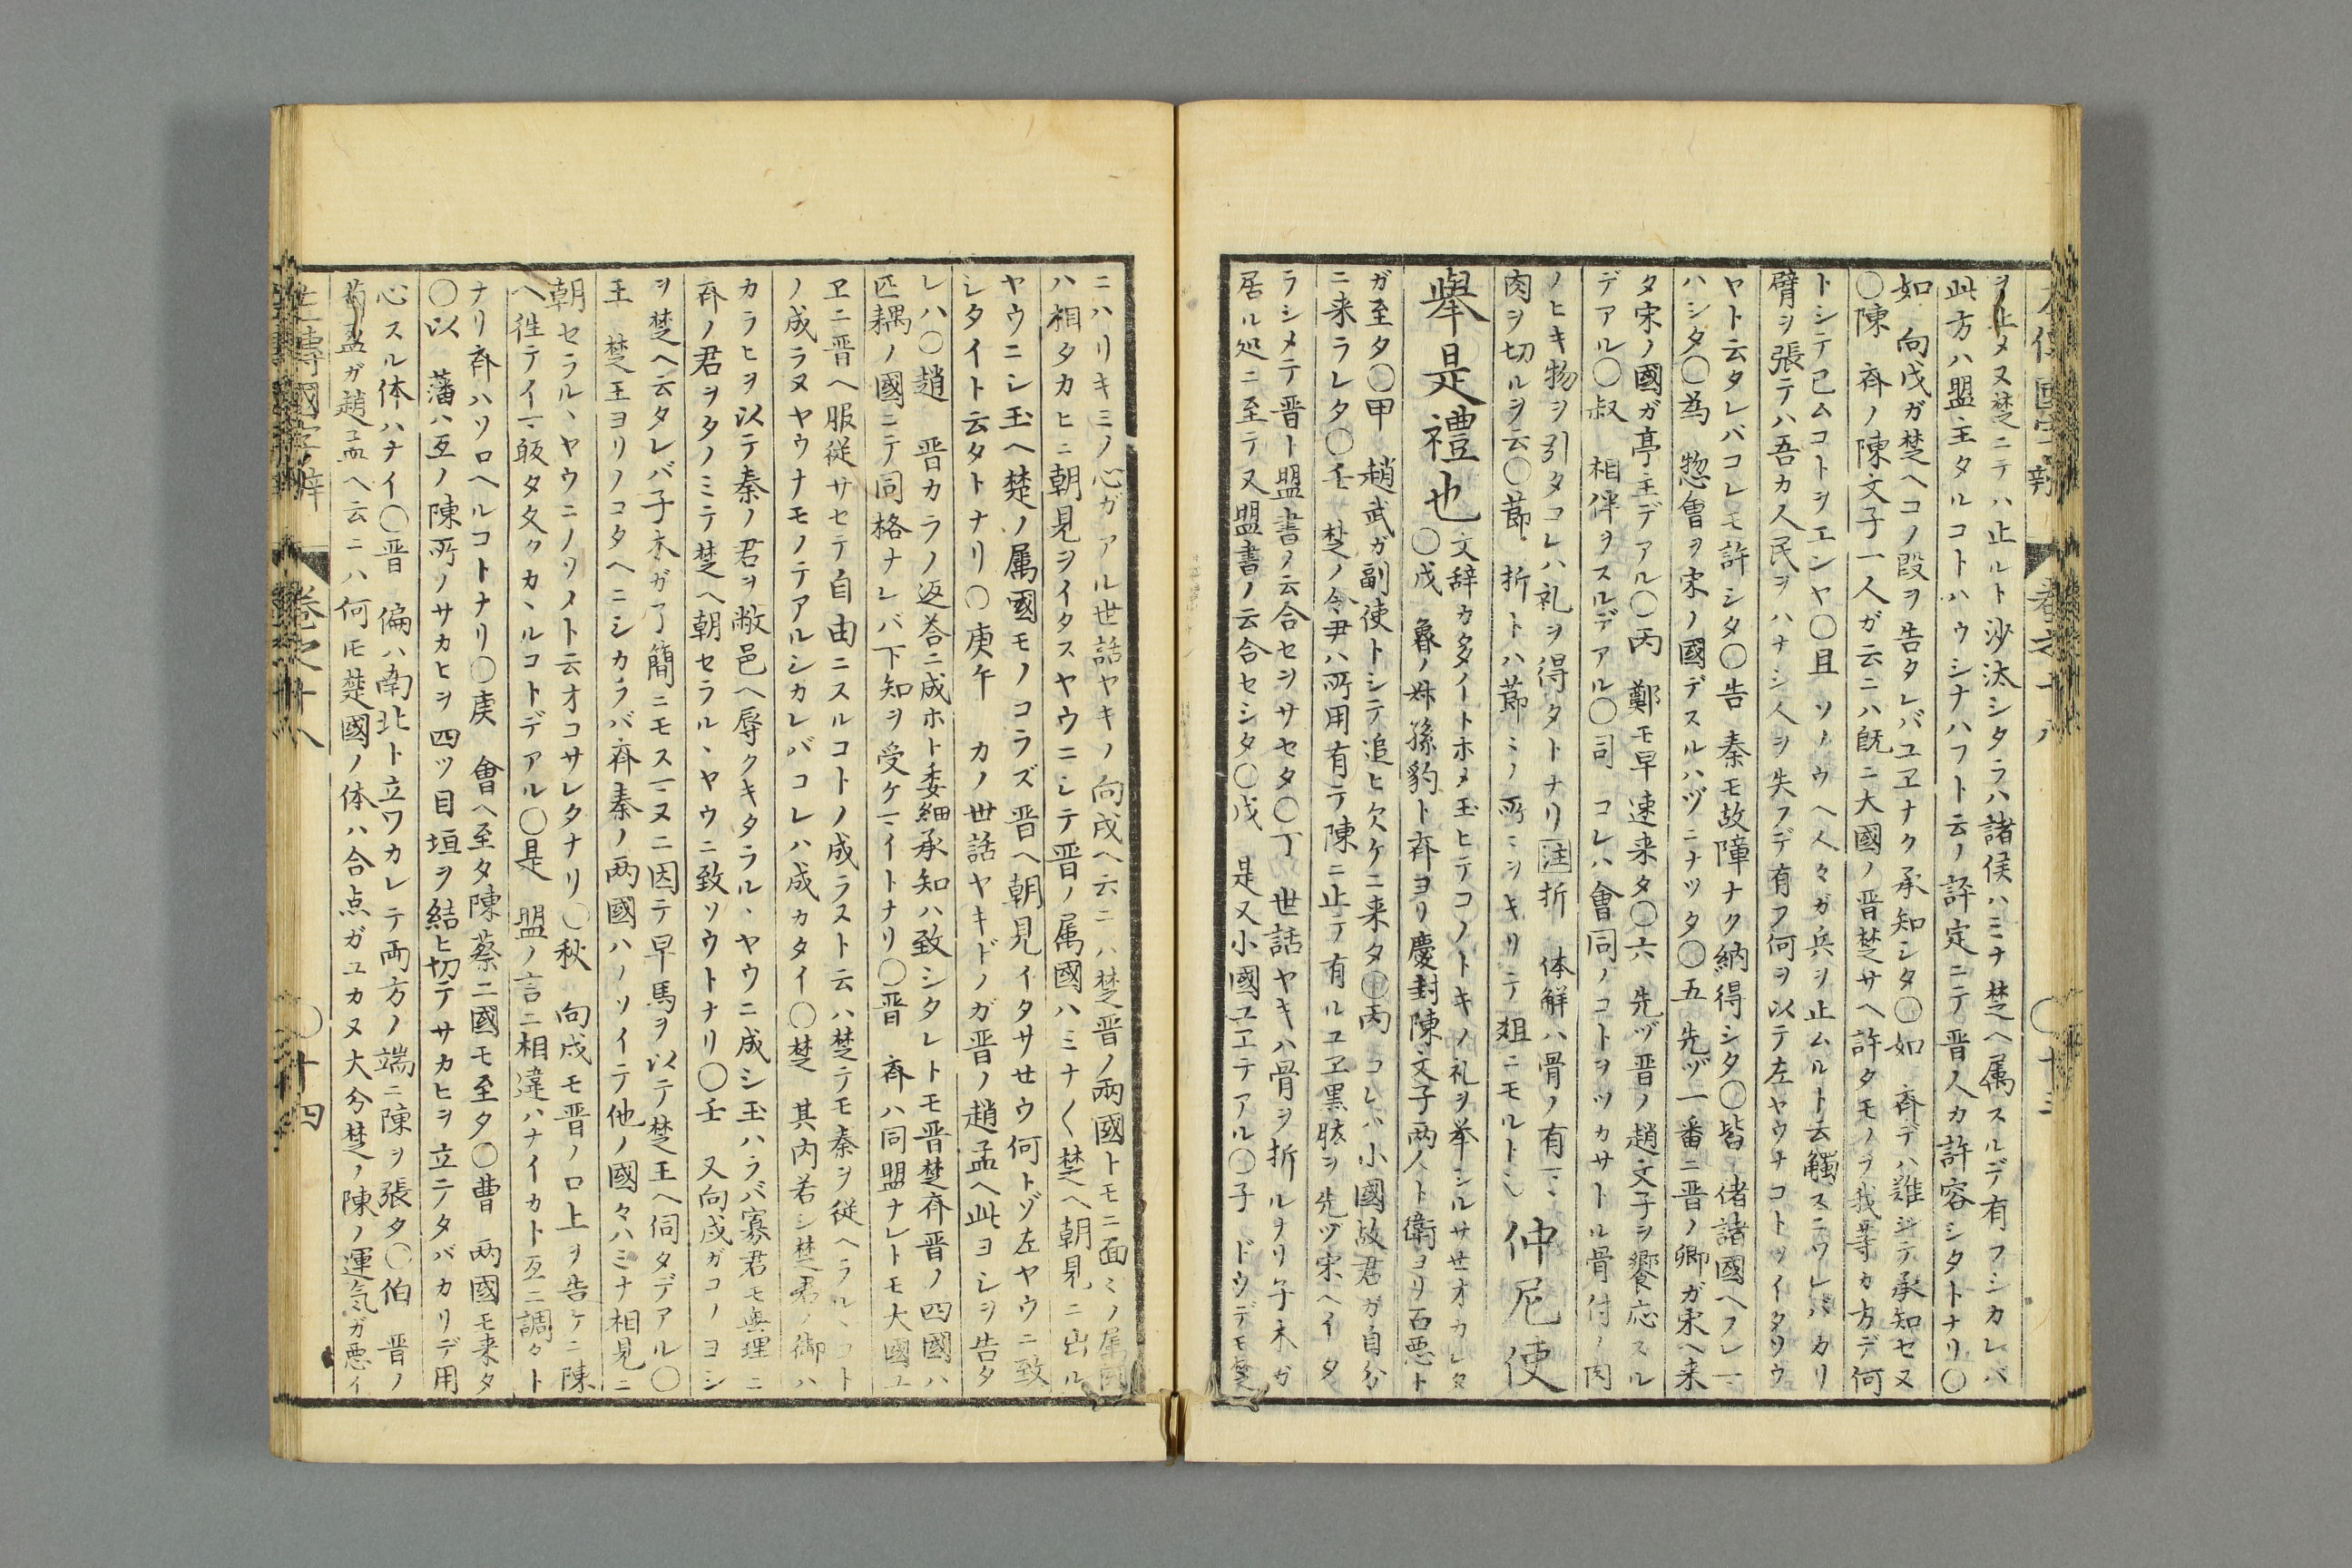 左傳國字辨 卷之十八 〇十三
ヲ止メヌ楚ニテハ止ルト沙汰シタラハ諸侯ハミナ楚ヘ属スルデ有フシカレバ
此方ハ盟主タルコトハウシナハフト云ノ評定ニテ晋人カ許容シタトナリ〇
如 向戌ガ楚ヘコノ段ヲ告タレバユヱナク承知シタ〇如 斉デハ難シテ承知セヌ
〇陳 斉ノ陳文子一人ガ云ニハ既ニ大國ノ晋楚サヘ許タモノヲ我等カ方デ何
トシテ已ムコトヲエンヤ〇且 ソノウヘ人々ガ兵ヲ止ムルト云觸スニワレバカリ
臂ヲ張テハ吾カ人民ヲハナシ人ヲ失フデ有フ何ヲ以テ左ヤウナコトヲイタソウ
ヤト云タレバコレモ許シタ〇告 秦モ故障ナク納得シタ〇皆 偖諸國ヘフレマ
ハシタ〇為 惣會ヲ宋ノ國デスルハヅニナツタ〇五 先ヅ一番ニ晋ノ卿ガ宋ヘ来
タ宋ノ國ガ亭主デアル〇丙 鄭モ早速来タ〇六 先ヅ晋ノ趙文子ヲ饗応スル
デアル〇叔 相伴ヲスルデアル〇司 コレハ會同ノコトヲツカサトル骨付ノ肉
ノヒキ物ヲ引タコレハ礼ヲ得タトナリ注折 体解ハ骨ノ有マヽ
肉ヲ切ルヲ云〇節 折トハ節ミノ所ミヲキリテ爼ニモルト也 仲尼使
擧是禮也 文辞カ多イトホメ玉ヒテコノトキノ礼ヲ挙シルサセオカレタ
〇戌 魯ノ叔孫豹ト斉ヨリ慶封陳文子两人ト衛ヨリ石悪ト
ガ至タ〇甲 趙武ガ副使トシテ追ヒ欠ケニ来タ〇丙 コレハ小國故君ガ自分
ニ来ラレタ〇壬 楚ノ令尹ハ所用有テ陳ニ止テ有ルユヱ黒肱ヲ先ヅ宋ヘイタ
ラシメテ晋ト盟書ノ云合セヲサセタ〇丁 世話ヤキハ骨ヲ折ルナリ子木ガ
居ル処ニ至テ又盟書ノ云合セシタ〇戊 是又小國ユヱテアル〇子 ドウデモ楚
ニハリキミノ心ガアル世話ヤキノ向戌ヘ云ニハ楚晋ノ兩國トモニ面ミノ属國
ハ相タカヒニ朝見ヲイタスヤウニシテ晋ノ属國ハミナ〱楚ヘ朝見ニ出ル
ヤウニシ玉ヘ楚ノ属國モノコラズ晋ヘ朝見イタサセウ何トゾ左ヤウニ致
シタイト云タトナリ〇庚午 カノ世話ヤキドノガ晋ノ趙孟ヘ此ヨシヲ告タ
レハ〇趙 晋カラノ返荅ニ成ホト委細承知ハ致シタレトモ晋楚斉晋ノ四國ハ
匹耦ノ國ニテ同格ナレバ下知ヲ受ケマイトナリ〇晋 斉ハ同盟ナレトモ大國ユ
ヱニ晋ヘ服従サセテ自由ニスルコトノ成ラスト云ハ楚テモ秦ヲ従ヘラルヽコト
ノ成ラヌヤウナモノテアルシカレバコレハ成カタイ〇楚 其内若シ楚君ノ御ハ
カラヒヲ以テ秦ノ君ヲ敝邑ヘ辱クキタラルヽヤウニ成シ玉ハラバ寡君モ無理ニ
斉ノ君ヲタノミテ楚ヘ朝セラルヽヤウニ致ソウトナリ〇壬 又向戌ガコノヨシ
ヲ楚ヘ云タレバ子木ガ了簡ニモスマヌニ因テ早馬ヲ以テ楚王ヘ伺タデアル〇
王 楚王ヨリノコタヘニシカラバ斉秦ノ两國ハノソイテ他ノ國々ハミナ相見ニ
朝セラルヽヤウニノソメト云オコサレタナリ〇秋 向戌モ晋ノ口上ヲ告ケニ陳
ヘ徃テイマ皈タ父クカヽルコトデアル〇是 盟ノ言ニ相違ハナイカト互ニ調タト
ナリ斉ハソロヘルコトナリ〇庚 會ヘ至タ陳蔡二國モ至タ〇曹 两國モ来タ
〇以 藩ハ互ノ陳所ノサカヒヲ四ツ目垣ヲ結ヒ切テサカヒヲ立ニノタバカリデ用
心スル体ハナイ〇晋 偏ハ南北ト立ワカレテ両方ノ端ニ陳ヲ張タ〇伯 晋ノ
荀盈ガ趙孟ヘ云ニハ何モ楚國ノ体ハ合点ガユカヌ大分楚ノ陳ノ運気ガ悪イ
左傳國字辨 卷之十八 〇十四